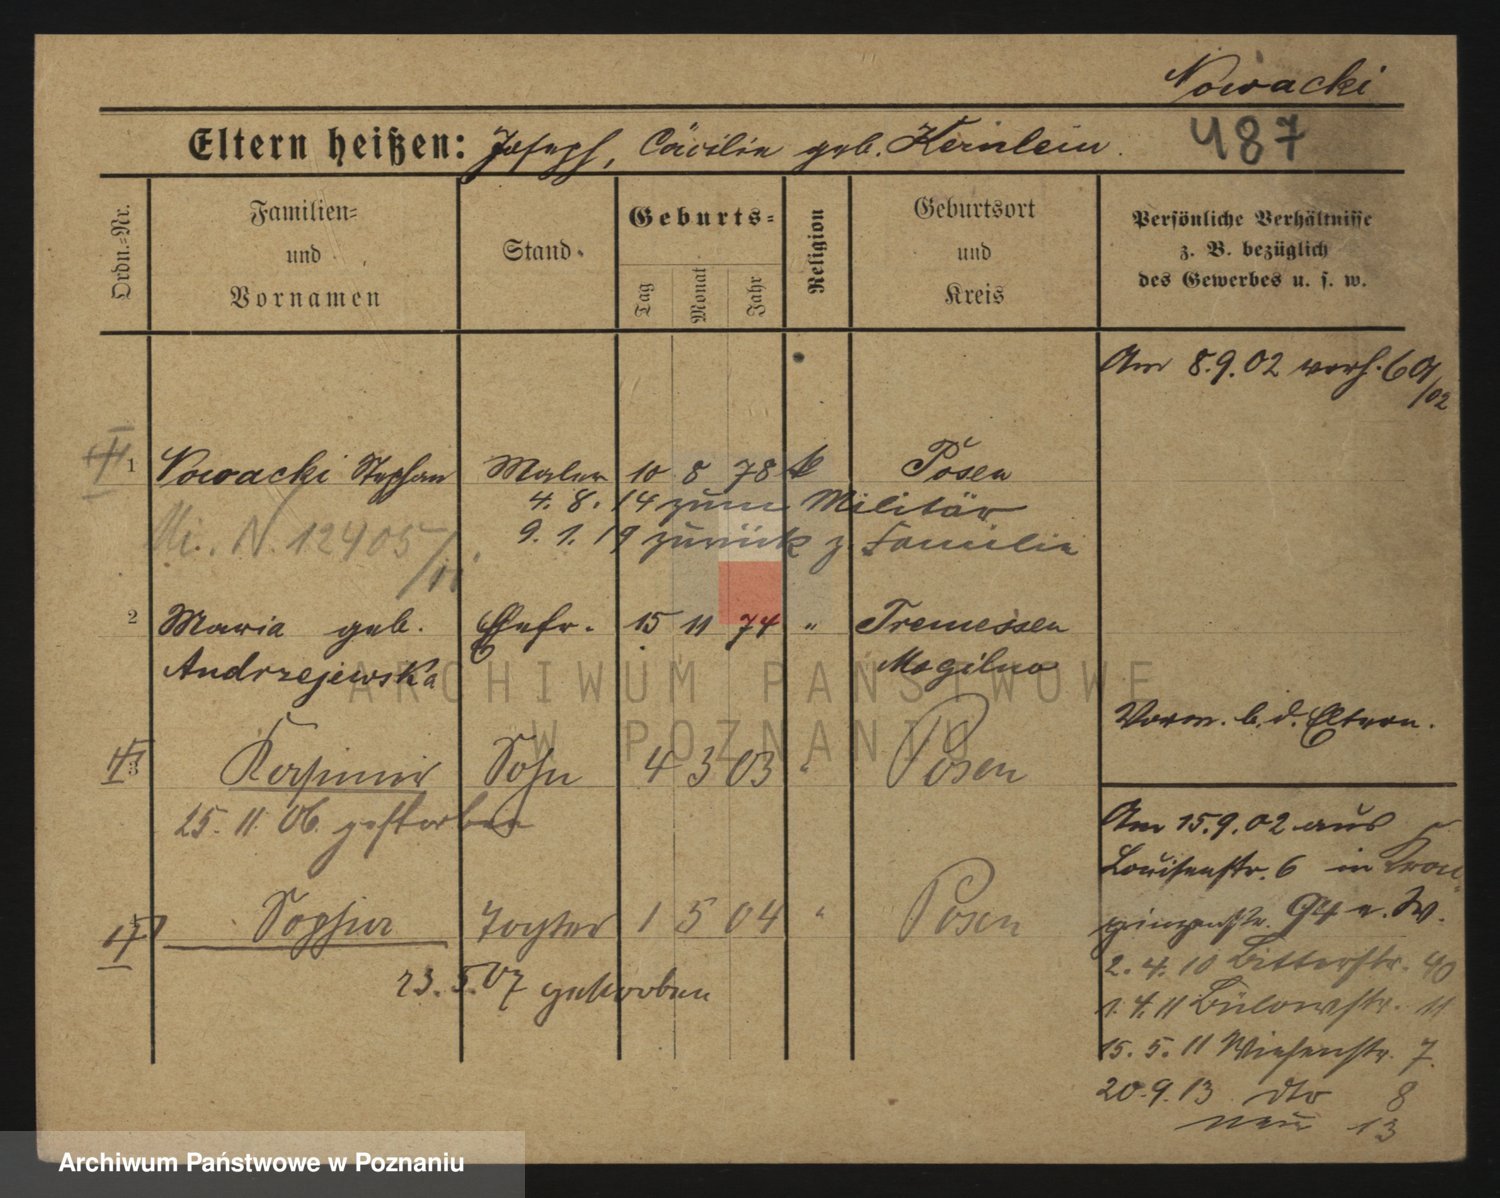 Nowacki
487
Eltern heißen: Joseph, Cäcilie geb. Kernlein.
Ordn.-Nr.
Familien-
und
Vornamen
Stand.
Geburts-
Tag
Monat
Jahr
Religion
Geburtsort
und
Kreis
Persönliche Verhältnisse
z. B. bezüglich
des Gewerbes u. s. w.
Am 8.9.02 verh. 6a/02
1 Nowacki Stephan Maler 10 8 78 k Posen
4. 8. 14 zum Militär
9. 1. 19 zurück z. Familie
Mi. N. 12405/11
2 Maria geb. Ehefr. 15 11 74 " Tremessen
Andrzejewska Mogilno
Vorm. b. d. Eltern.
3 Kasimir Sohn 4 3 03 " Posen
25. 11. 06. gestorben
Sophia Tochter 1 5 04 " Posen
23. 5. 07 gestorben
Am 15.9.02 aus
Louisenstr. 6 in Kron-
prinzenstr. 94 a. W.
2. 4. 10 Bitterstr. 40
1. 4. 11 Bülowstr. 11
15. 5. 11 Wiesenstr. 7.
20. 9. 13 dto 8
neu 13
ARCHIWUM PAŃSTWOWE
W POZNANIU
Archiwum Państwowe w Poznaniu